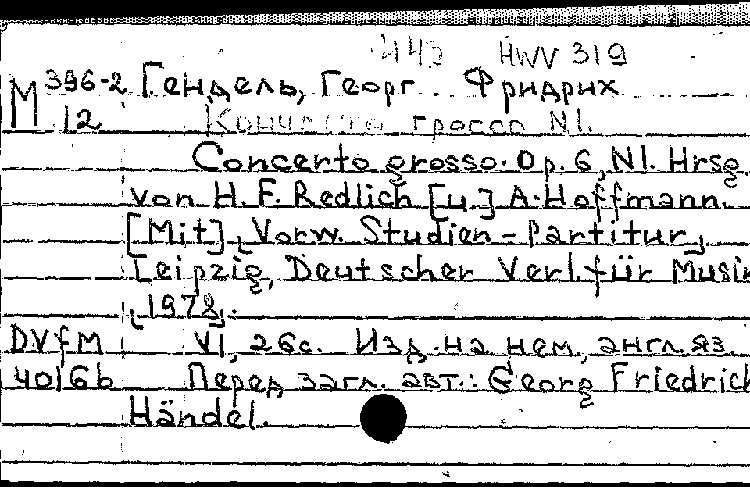 442 HWV 319
М 396-2 Гендель, Георг Фридрих
12 Кончерто гроссо N1.
Concerto grosso. Op. 6, N1. Hrsg.
von H. F. Redlich [u.] A. Hoffmann.
[Mit] Vorw. Studien-Partitur,
Leipzig, Deutscher Verl. für Musik
1978.
DVfM VI, 26 с. Изд. на нем., англ. яз.
4016b Перед загл. авт.: Georg Friedrich
Händel.